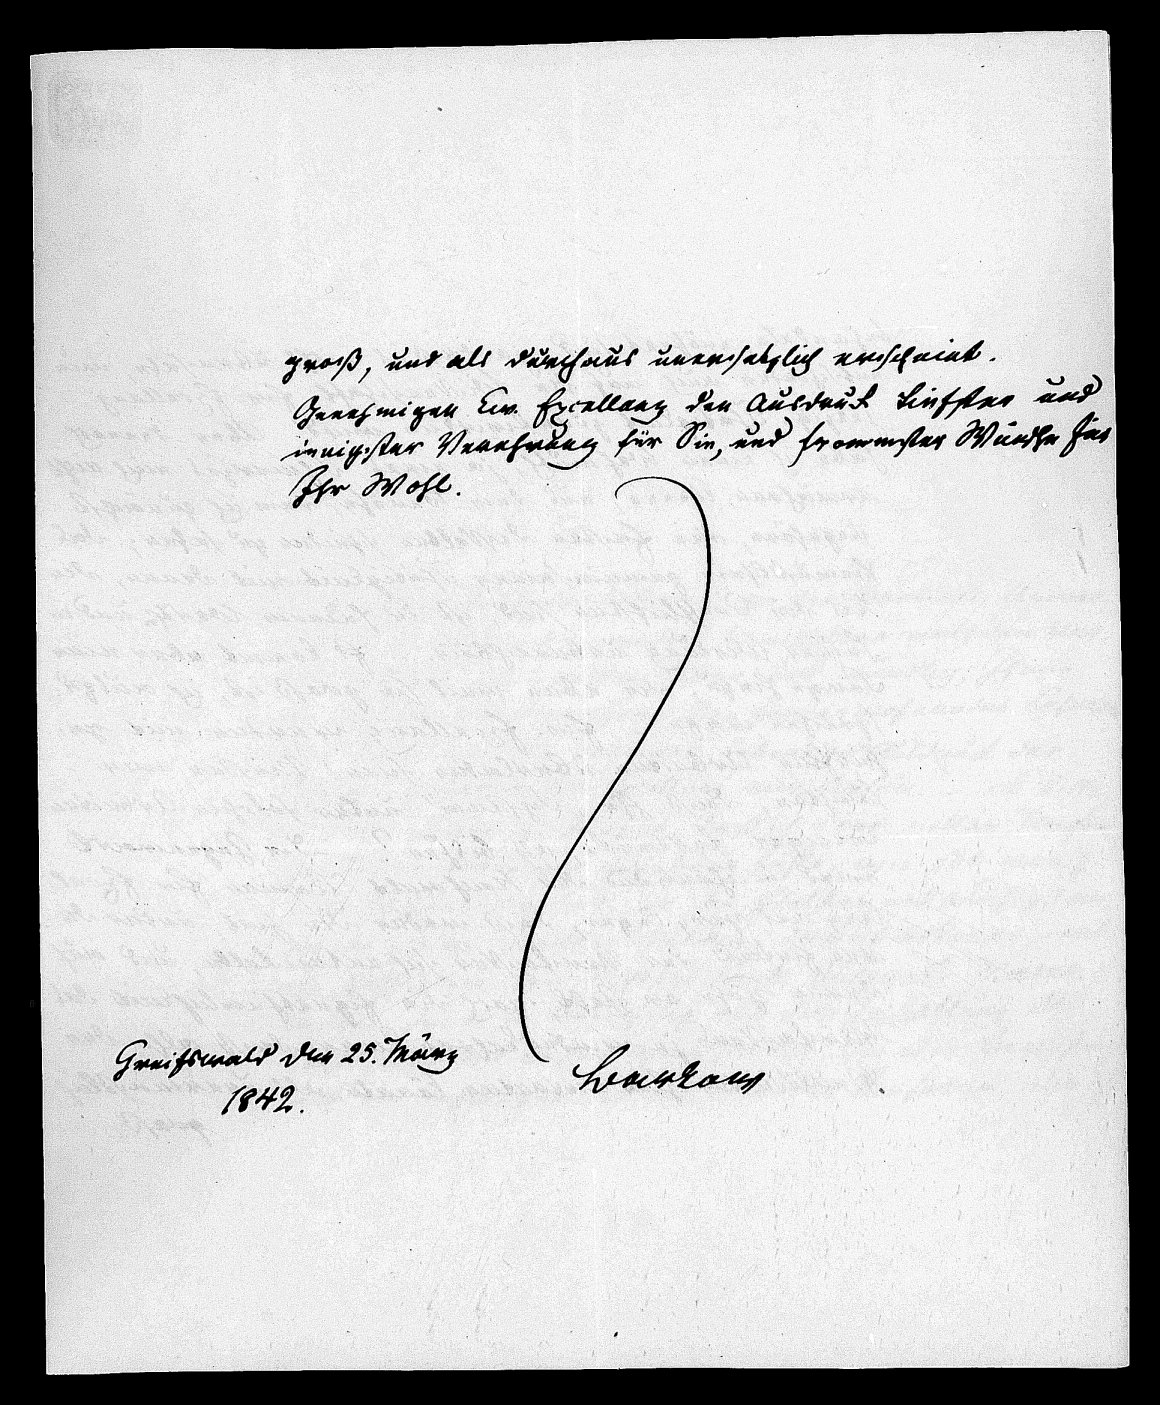 groß, und als durchaus unersetzlich erscheint.
Genehmigen Ew. Excellenz den Ausdruck tiefster und
innigster Verehrung für Sie, und frommster Wünsche für
Ihr Wohl.
Greifswald den 25. März
1842.
Barkow